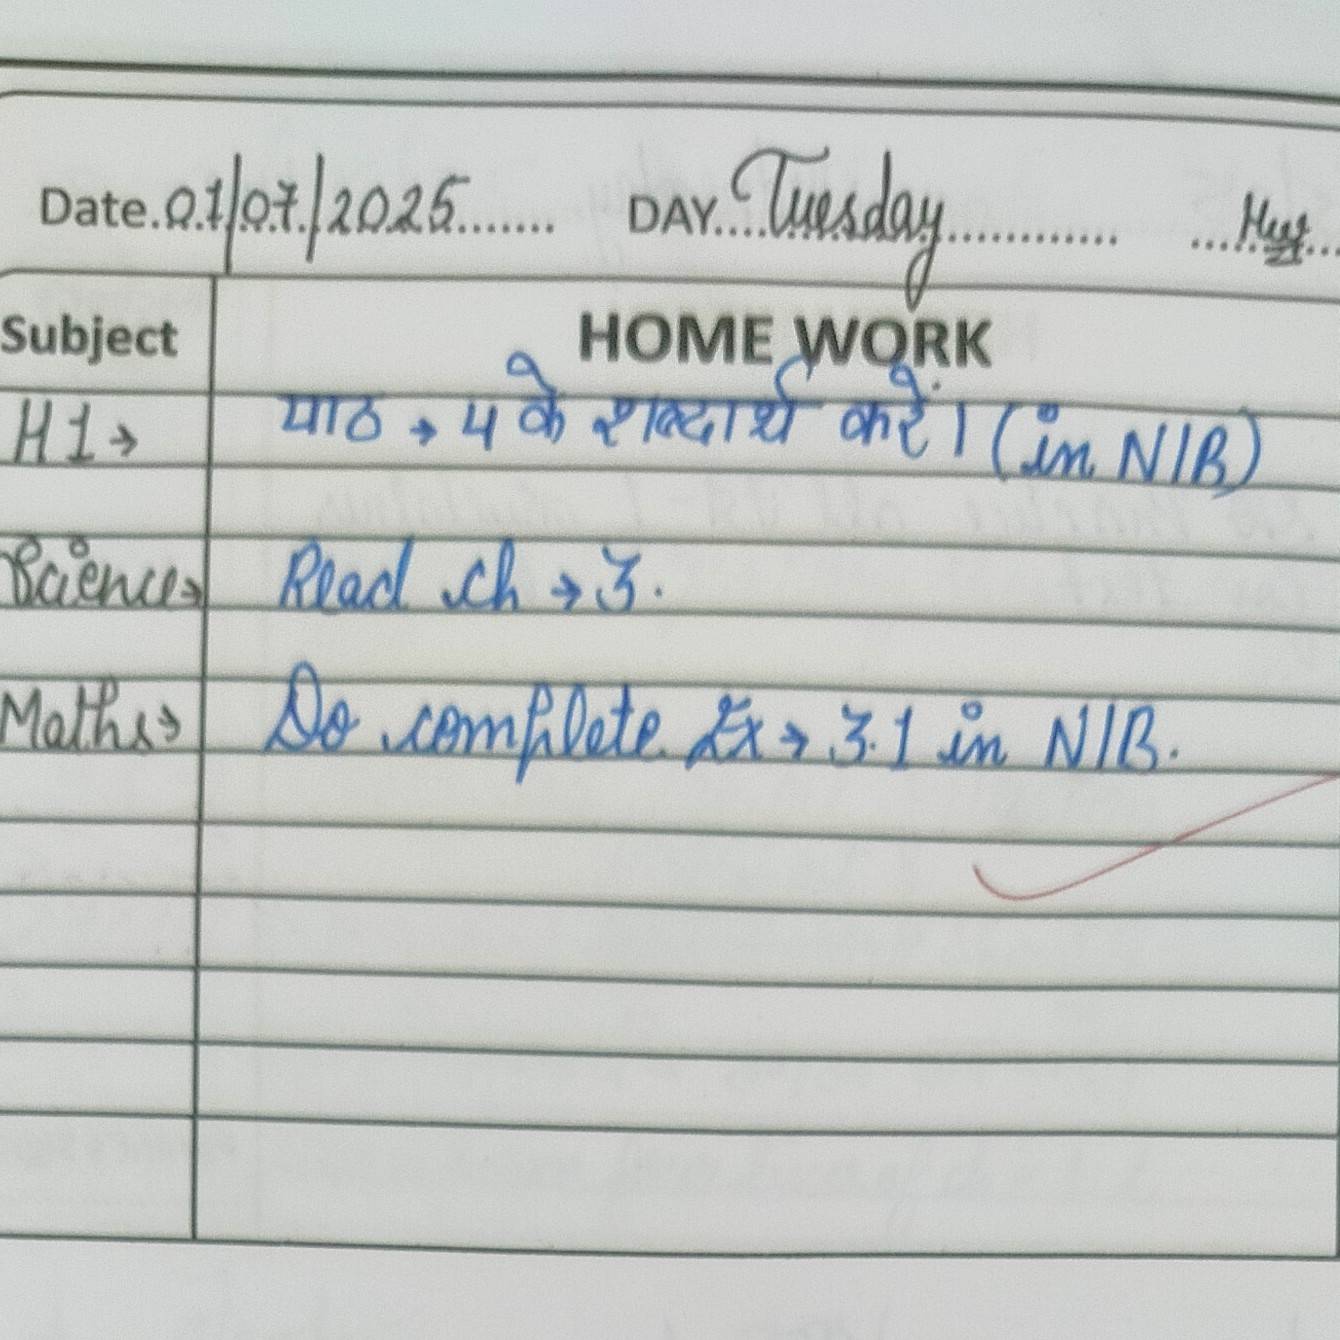 Date.01/07/2025....... DAY...Tuesday............
Subject HOME WORK
H1→ पाठ → 4 के शब्दार्थ करें। (in N/B)
Science→ Read ch → 3.
Maths→ Do complete Ex → 3.1 in N/B.